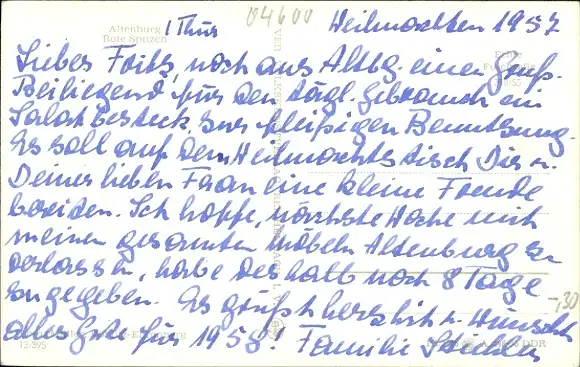 04600
Altenburg
Rote Spitzen
/ Thür
Weihnachten 1957
Liebes Fritz, noch aus Altbg. einen Gruß.
Beiliegend für den tägl. gebrauch ein
Salatbesteck zur fleißigen Benutzung.
Es soll auf dem Weihnachtstisch Dir u.
Deiner lieben Frau eine kleine Freude
bereiten. Ich hoffe, nächste Woche mit
meinen gesamten Möbeln Altenburg zu
verlassen, habe deshalb noch 8 Tage
zugegeben. Es grüßt herzlich u. wünscht
alles Gute für 1958! Familie
-,30
13/395
DDR